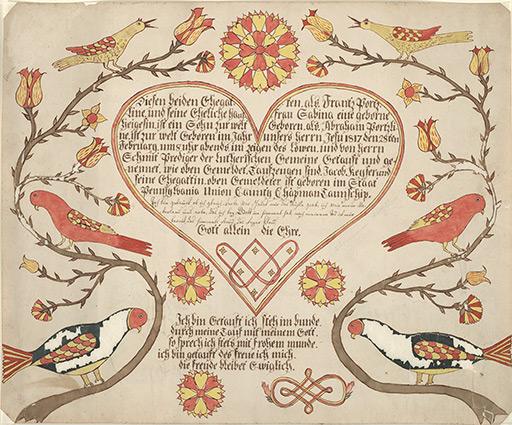 Diesen beiden Ehegat= ten, als Frantz Portz
line, und seine Eheliche Haus frau Sabina eine geborne
Heigesin, ist ein Sohn zur welt Geboren, als, Abraham Portzli=
ne, ist zur welt Geboren im Jahr unsers Herrn Jesu 1817 den 28sten
February, um 5 uhr abends im zeigen des Löwen, und von Herrn
Schmit Prediger der lutherischen Gemeine Getauft und ge=
nennet, wie oben Gemeldet, Taufzeugen sind, Jacob, Keyser und
seine Ehegattin, oben Gemeldeter ist geboren im Staat
Pennsylvania Union Caunty Chapman Taunschip.
Gott allein die Ehre.
Ich bin Getauft ich steh im bunde,
durch meine Tauf mit meinem Gott.
so sprech ich stets mit frohem munde,
ich bin getauft des freue ich mich,
die freude bleibet Ewiglich.